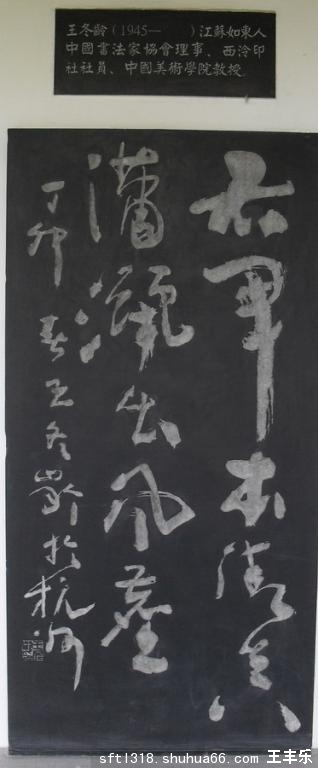 王冬齡（1945—　　）江蘇如東人
中國書法家協會理事、西泠印
社社員、中國美術學院教授。
右軍本清真
瀟灑出風塵
丁卯春王冬齡於杭州
sftl318.shuhua66.com 王丰乐